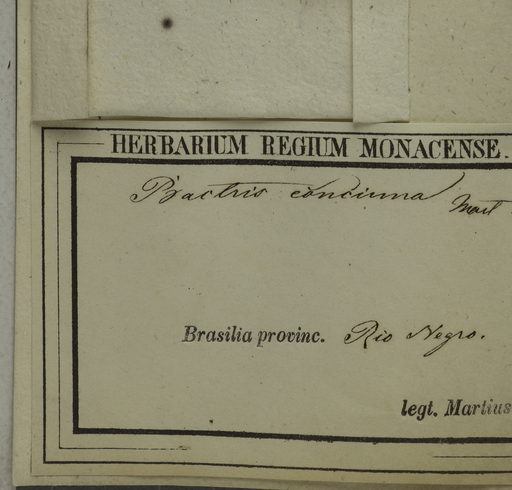 HERBARIUM REGIUM MONACENSE.
Bactris concinna Mart
Brasilia provinc. Rio Negro.
legt. Martius